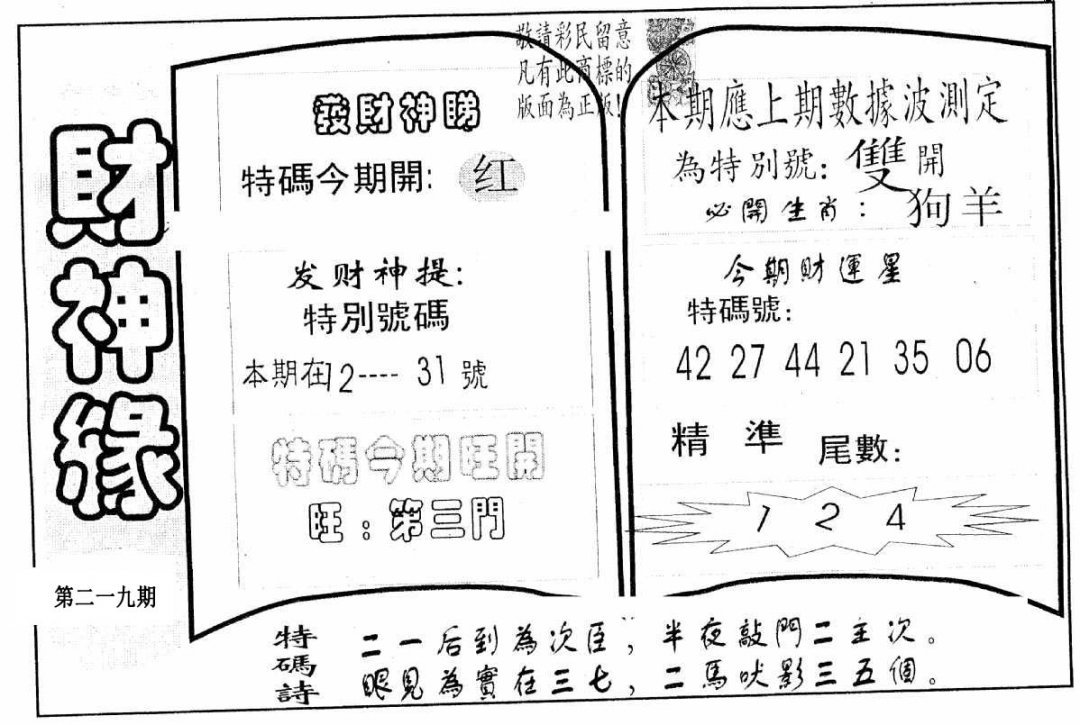 財神緣
第二一九期
敬請彩民留意
凡有此商標的
版面為正版!
發財神睇
特碼今期開: 红
发财神提:
特別號碼
本期在12---- 31 號
特碼今期旺開
旺:第三門
本期應上期數據波測定
為特別號: 雙開
必開生肖: 狗羊
今期財運星
特碼號:
42 27 44 21 35 06
精 準 尾數:
1 2 4
特碼詩
二一后到為次臣,半夜敲門二主次。
眼見為實在三七,二馬吠影三五個。